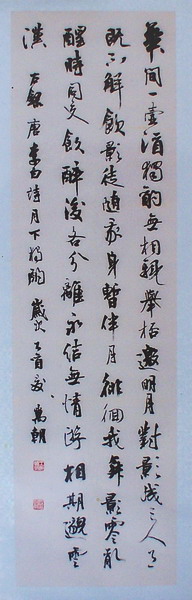 華間一壺酒獨酌無相親舉杯邀明月對影成三人月
既不解飲影徒隨我身暫伴月徘徊我舞影零亂
醒時同交歡醉後各分離永結無情遊相期邈雲
漢 右錄唐李白詩月下獨酌 歲次乙酉夏 萬朝